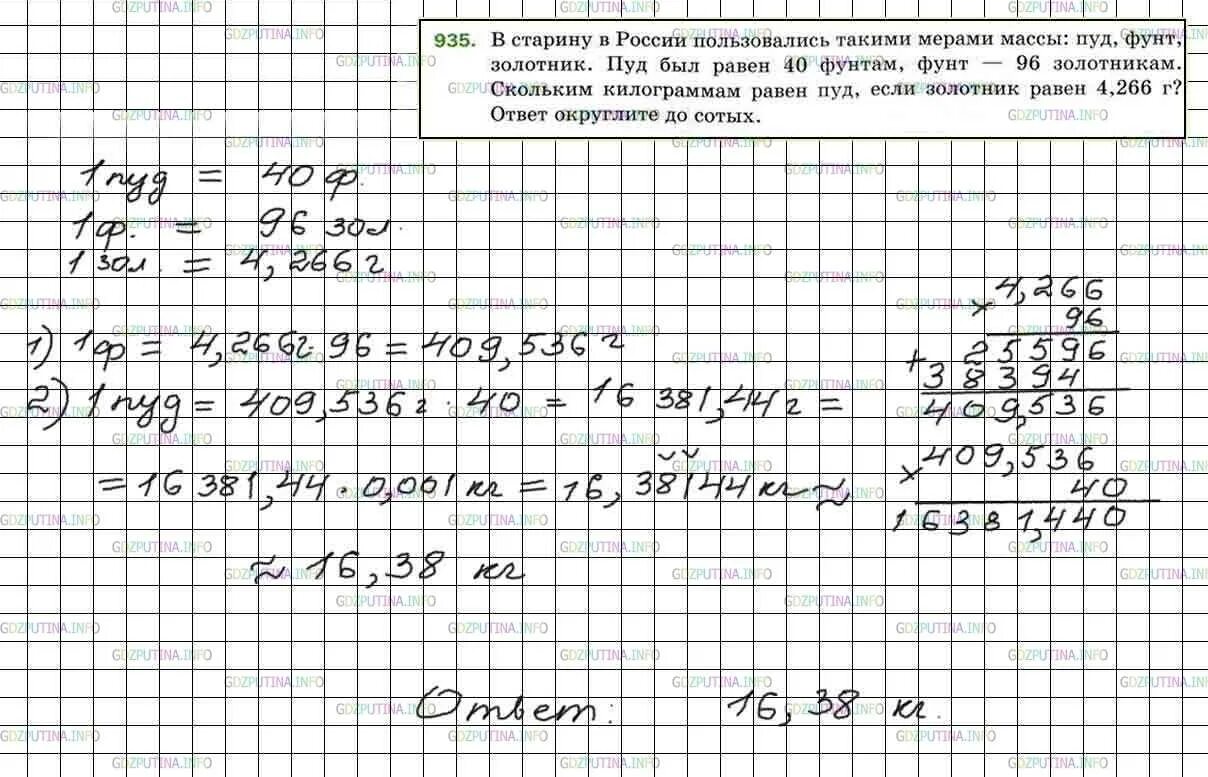 935. В старину в России пользовались такими мерами массы: пуд, фунт,
золотник. Пуд был равен 40 фунтам, фунт — 96 золотникам.
Скольким килограммам равен пуд, если золотник равен 4,266 г?
Ответ округлите до сотых.
1 пуд = 40 ф.
1 ф. = 96 зол.
1 зол. = 4,266 г
1) 1 ф = 4,266 г · 96 = 409,536 г
2) 1 пуд = 409,536 г · 40 = 16 381,44 г =
= 16 381,44 · 0,001 кг = 16,38144 кг ≈
≈ 16,38 кг
× 4,266
96
+ 25596
38394
409,536
× 409,536
40
16381,440
Ответ: 16,38 кг.
GDZPUTINA.INFO